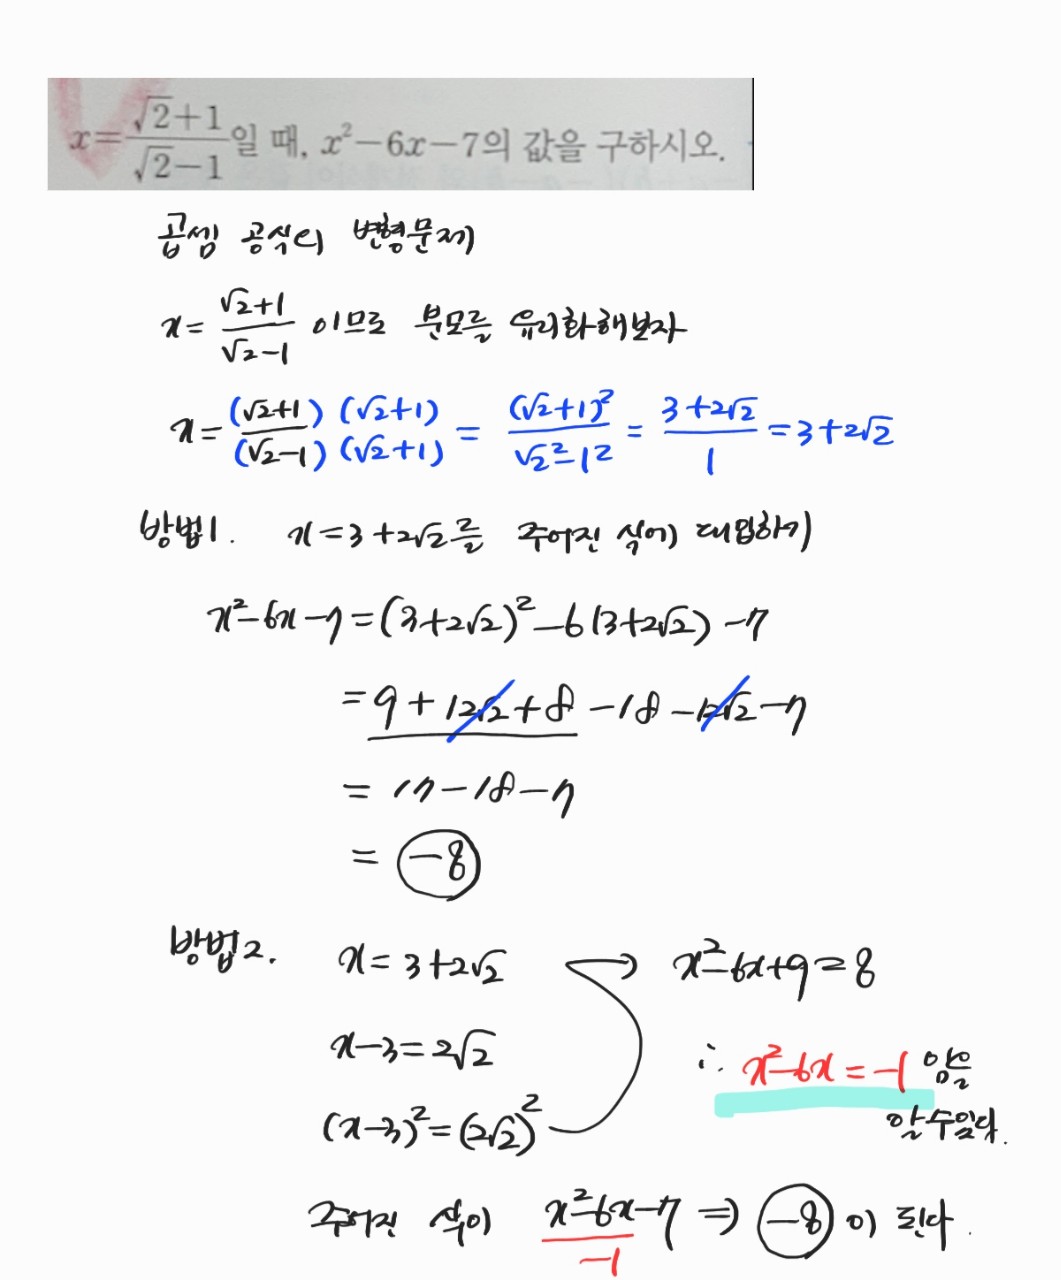 x=(√2+1)/(√2−1)일 때, x²−6x−7의 값을 구하시오.
곱셈 공식의 변형문제
x= (√2+1)/(√2−1) 이므로 분모를 유리화해보자
x= (√2+1)(√2+1)/(√2−1)(√2+1) = (√2+1)²/(√2²−1²) = (3+2√2)/1 = 3+2√2
방법1. x=3+2√2를 주어진 식에 대입하기
x²−6x−7=(3+2√2)²−6(3+2√2)−7
=9+12√2+8−18−12√2−7
= 17−18−7
= −8
방법2. x=3+2√2 → x²−6x+9=8
x−3=2√2
∴ x²−6x=−1 임을
(x−3)²=(2√2)²
알 수 있다.
주어진 식이 x²−6x−7 ⇒ −8 이 된다.
−1